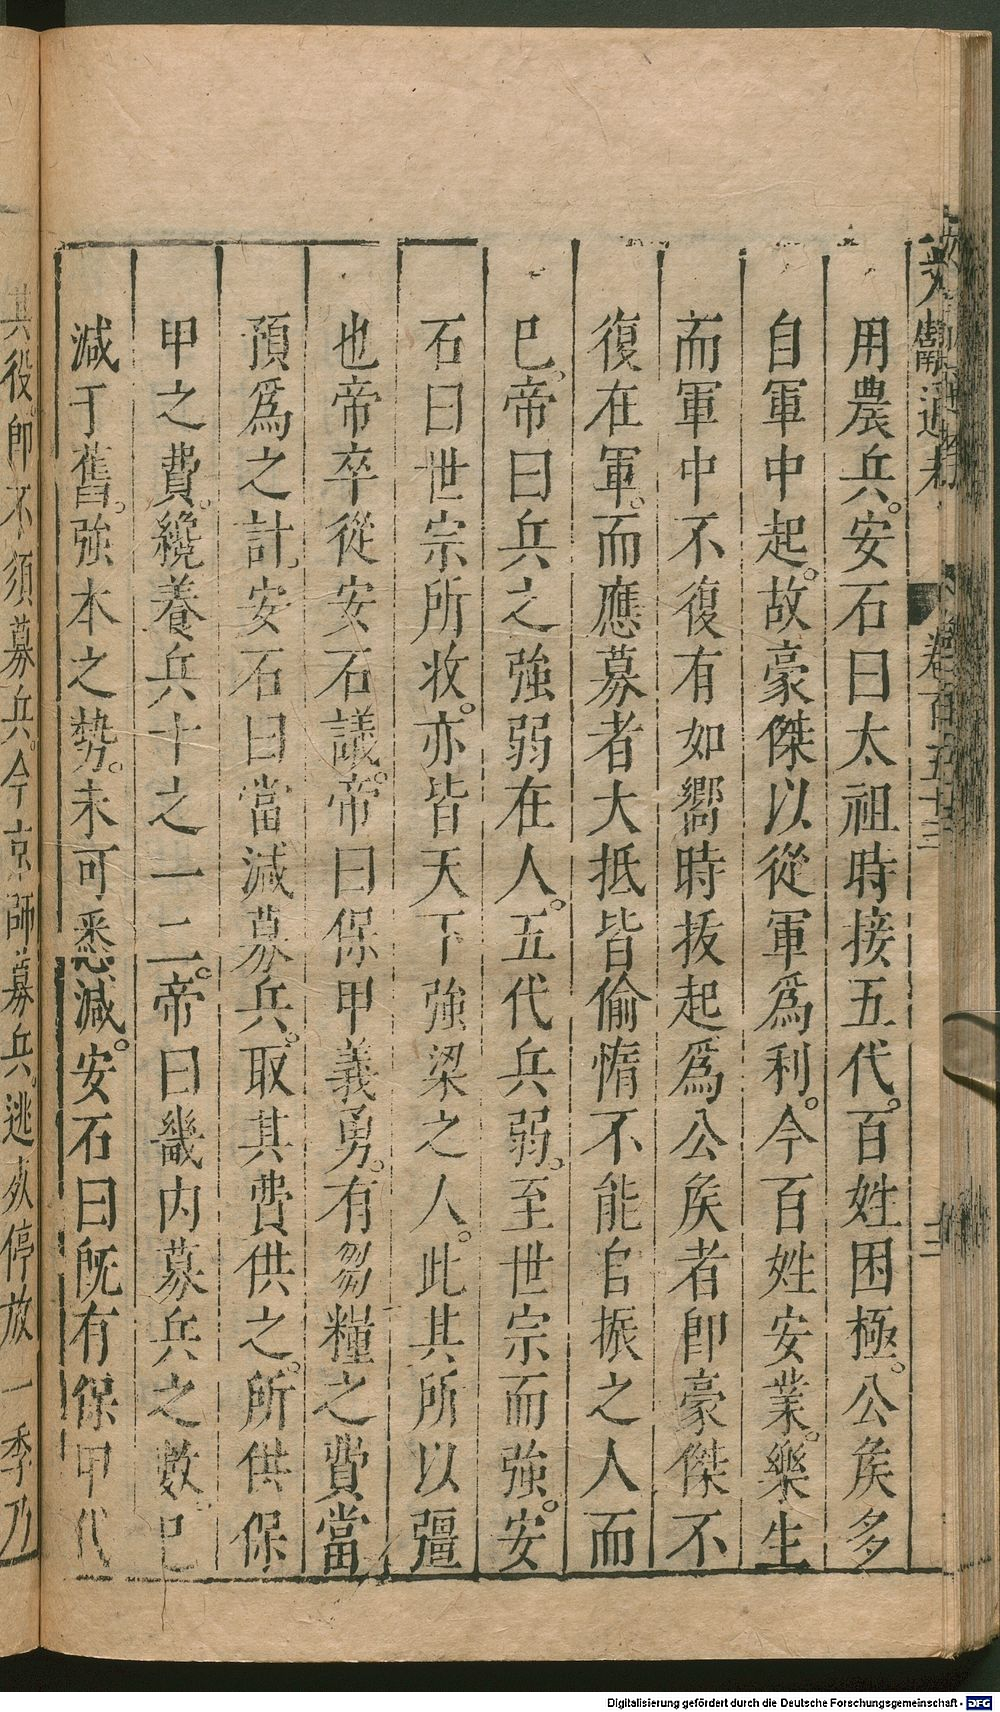 文獻通考 卷百五十三
用農兵。安石曰太祖時接五代。百姓困極。公矦多
自軍中起。故豪傑以從軍爲利。今百姓安業。樂生
而軍中不復有如嚮時拔起爲公矦者即豪傑不
復在軍。而應募者大抵皆偷惰不能自振之人而
已。帝曰兵之強弱在人。五代兵弱。至世宗而強。安
石曰世宗所收。亦皆天下強梁之人。此其所以彊
也帝卒從安石議。帝曰保甲義勇。有芻糧之費當
預爲之計。安石曰當減募兵。取其費供之。所供保
甲之費。纔養兵十之一二。帝曰畿内募兵之數。已
減于舊。強本之勢。未可悉減。安石曰旣有保甲代
其役。即不須募兵。今京師募兵。逃死停放一季乃
Digitalisierung gefördert durch die Deutsche Forschungsgemeinschaft - DFG